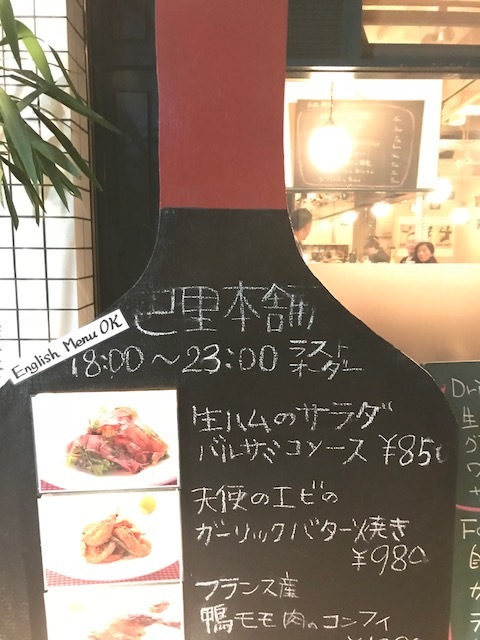 巴里本舗
English Menu OK
18:00～23:00 ラストオーダー
生ハムのサラダ
バルサミコソース ¥850
天使のエビの
ガーリックバター焼き
¥980
フランス産
鴨モモ肉のコンフィ